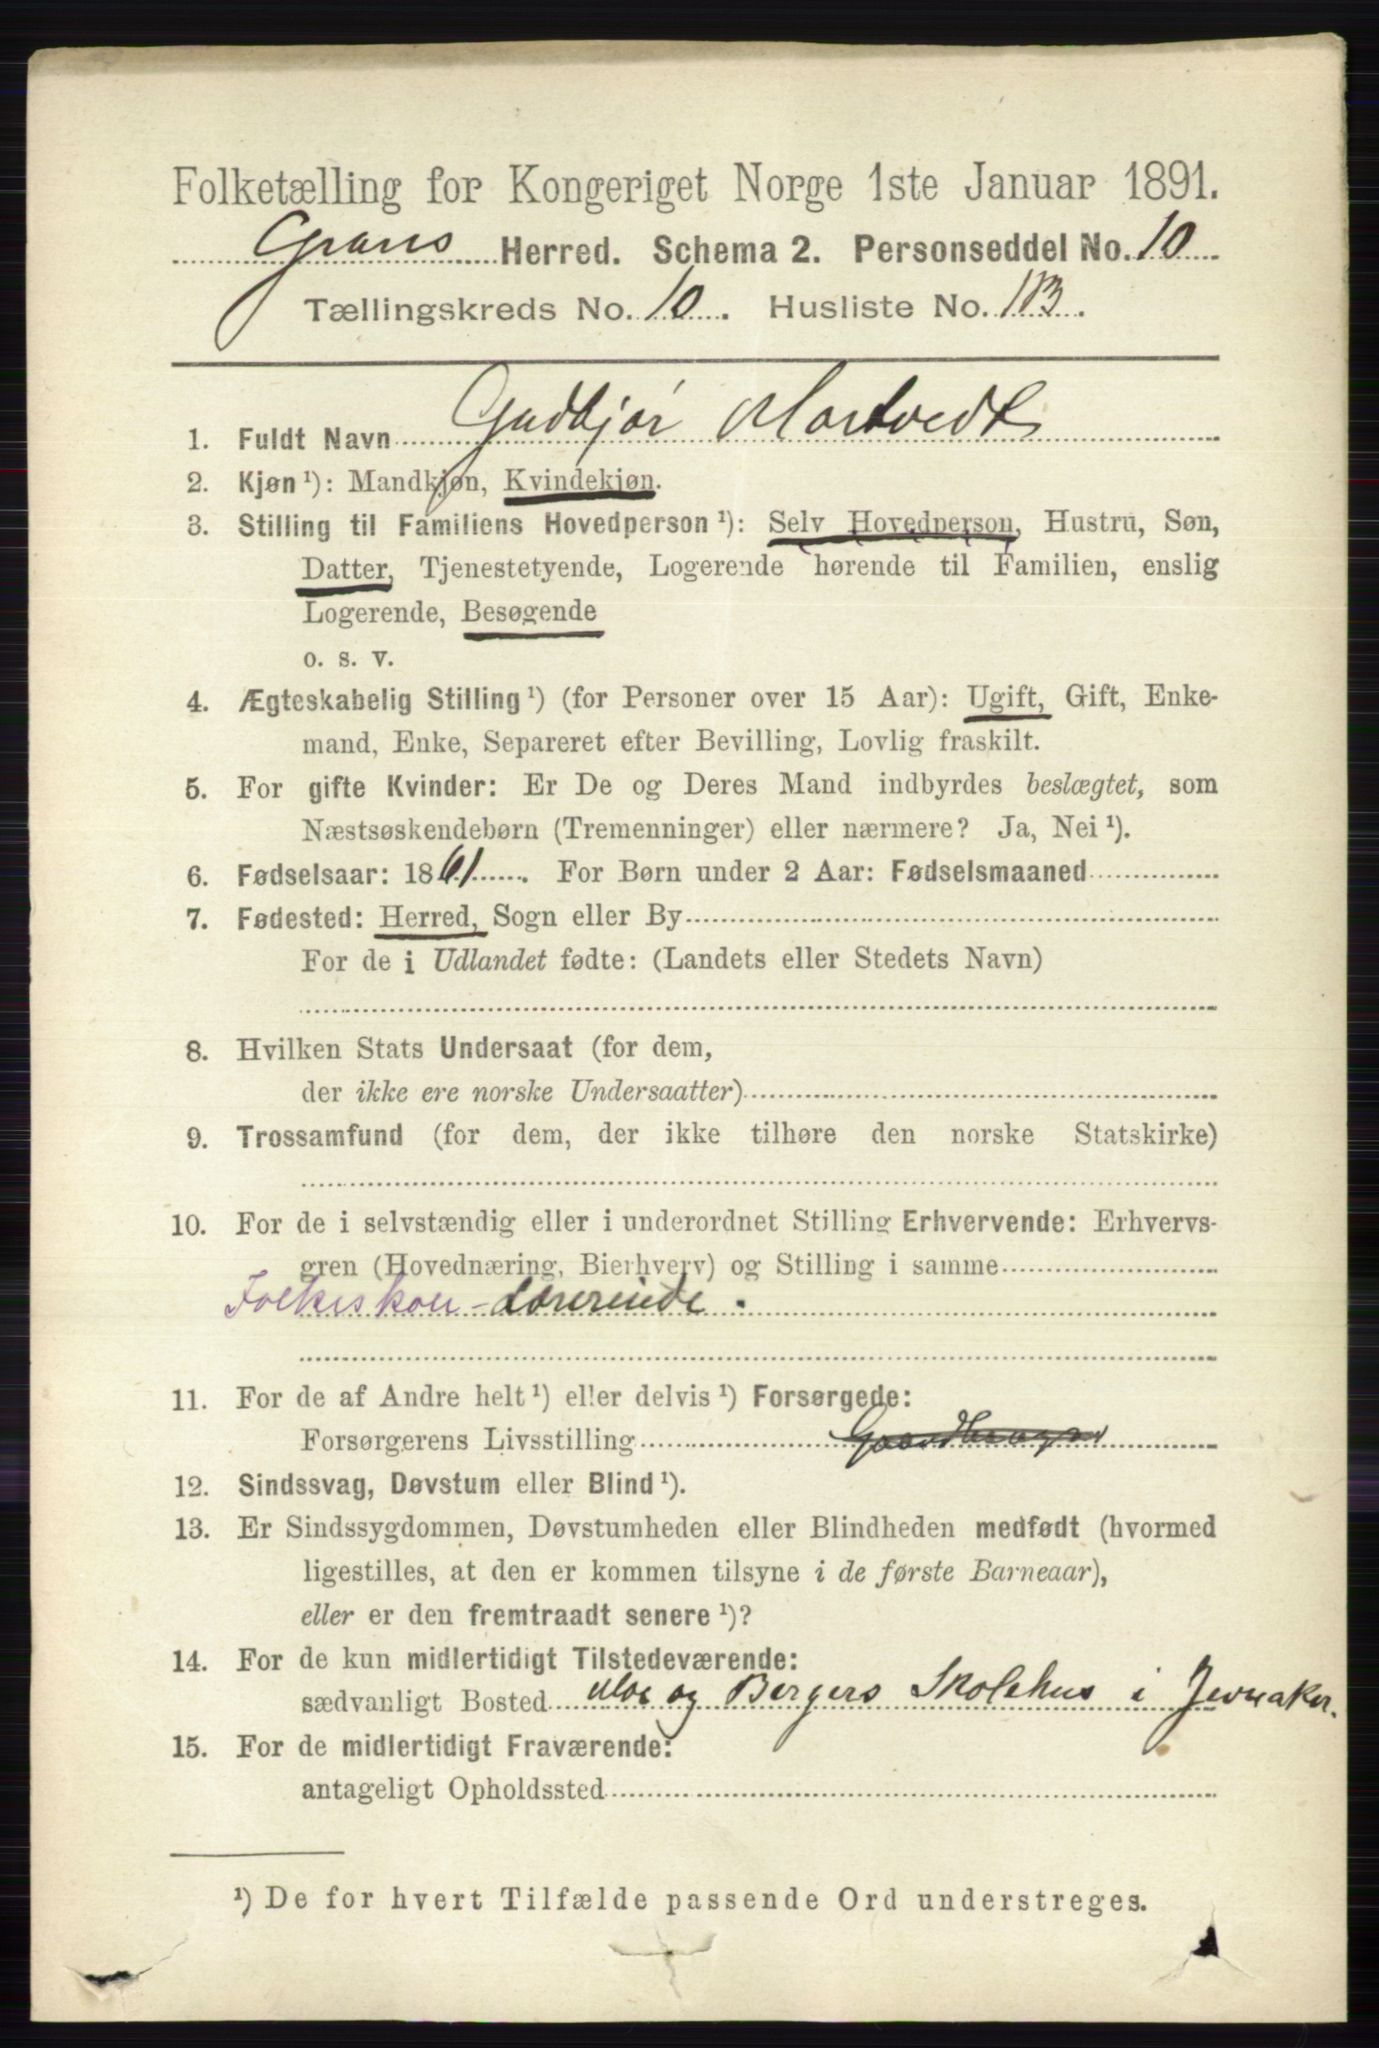 Folketælling for Kongeriget Norge 1ste Januar 1891.
Grans Herred. Schema 2. Personseddel No. 10
Tællingskreds No. 10. Husliste No. 113.
1. Fuldt Navn Gudbjør Mortvedt
2. Kjøn ¹): Mandkjøn, Kvindekjøn.
3. Stilling til Familiens Hovedperson ¹): Selv Hovedperson, Hustru, Søn,
Datter, Tjenestetyende, Logerende hørende til Familien, enslig
Logerende, Besøgende
o. s. v.
4. Ægteskabelig Stilling ¹) (for Personer over 15 Aar): Ugift, Gift, Enke-
mand, Enke, Separeret efter Bevilling, Lovlig fraskilt.
5. For gifte Kvinder: Er De og Deres Mand indbyrdes beslægtet, som
Næstsøskendebørn (Tremenninger) eller nærmere? Ja, Nei ¹).
6. Fødselsaar: 1861. For Børn under 2 Aar: Fødselsmaaned
7. Fødested: Herred, Sogn eller By
For de i Udlandet fødte: (Landets eller Stedets Navn)
8. Hvilken Stats Undersaat (for dem,
der ikke ere norske Undersaatter)
9. Trossamfund (for dem, der ikke tilhøre den norske Statskirke)
10. For de i selvstændig eller i underordnet Stilling Erhvervende: Erhvervs-
gren (Hovednæring, Bierhverv) og Stilling i samme
Folkeskole-Lærerinde.
11. For de af Andre helt ¹) eller delvis ¹) Forsørgede:
Forsørgerens Livsstilling
12. Sindssvag, Døvstum eller Blind ¹).
13. Er Sindssygdommen, Døvstumheden eller Blindheden medfødt (hvormed
ligestilles, at den er kommen tilsyne i de første Barneaar),
eller er den fremtraadt senere ¹)?
14. For de kun midlertidigt Tilstedeværende:
sædvanligt Bosted Moe og Bergers Skolehus i Jevnaker.
15. For de midlertidigt Fraværende:
antageligt Opholdssted
¹) De for hvert Tilfælde passende Ord understreges.